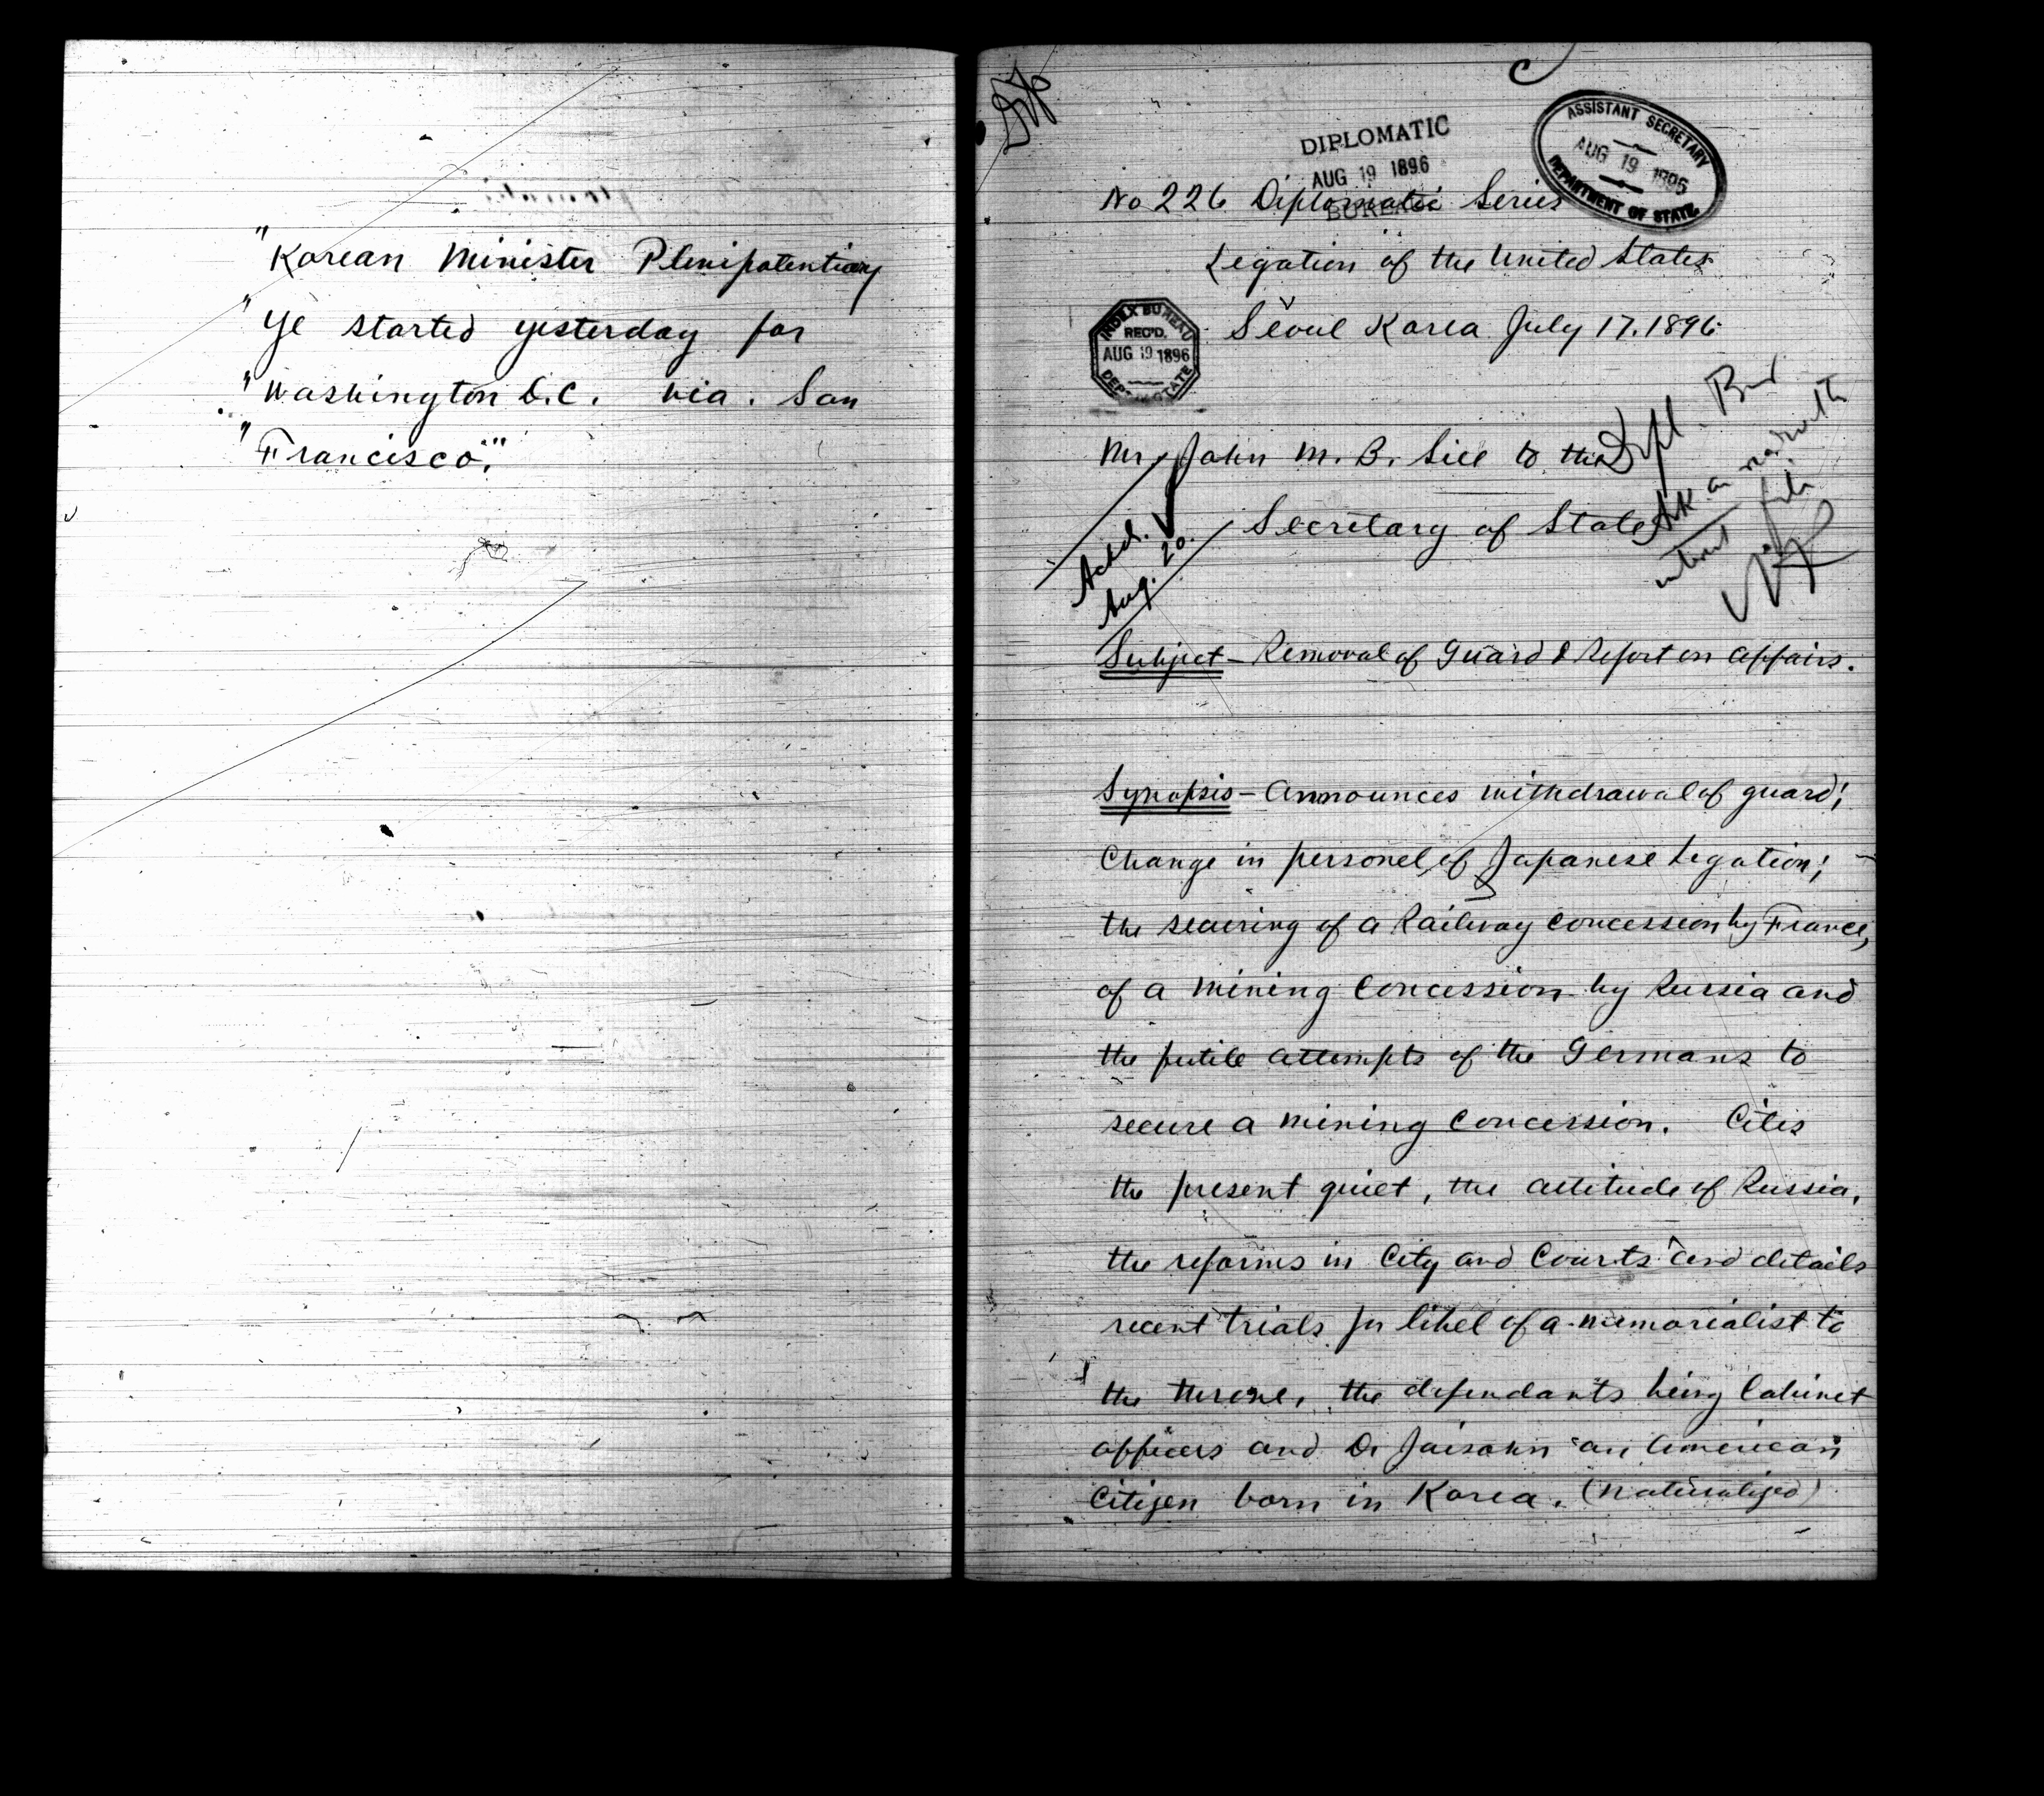 "Korean Minister Plenipotentiary
"Ye started yesterday for
"Washington D.C. via. San
"Francisco."
DIPLOMATIC
AUG 19 1896
BUREAU
ASSISTANT SECRETARY
AUG 19 1896
DEPARTMENT OF STATE
No 226 Diplomatic Series
Legation of the United States
INDEX BUREAU
REC'D.
AUG 19 1896
DEPT STATE
Seoul Korea July 17.1896
Mr. John M. B. Sill to the
Dipl. Bu
Secretary of State
Ackd.
Aug. 20.
Subject - Removal of Guard & Report on affairs.
Synopsis - Announces withdrawal of guard;
Change in personel of Japanese Legation;
the securing of a Railway concession by France,
of a mining concession by Russia and
the futile attempts of the Germans to
secure a mining concession. Cites
the present quiet, the attitude of Russia,
the reforms in City and Courts and details
recent trials for libel of a memorialist to
the throne, the defendants being Cabinet
officers and Dr Jaisohn an American
Citizen born in Korea. (naturalized)